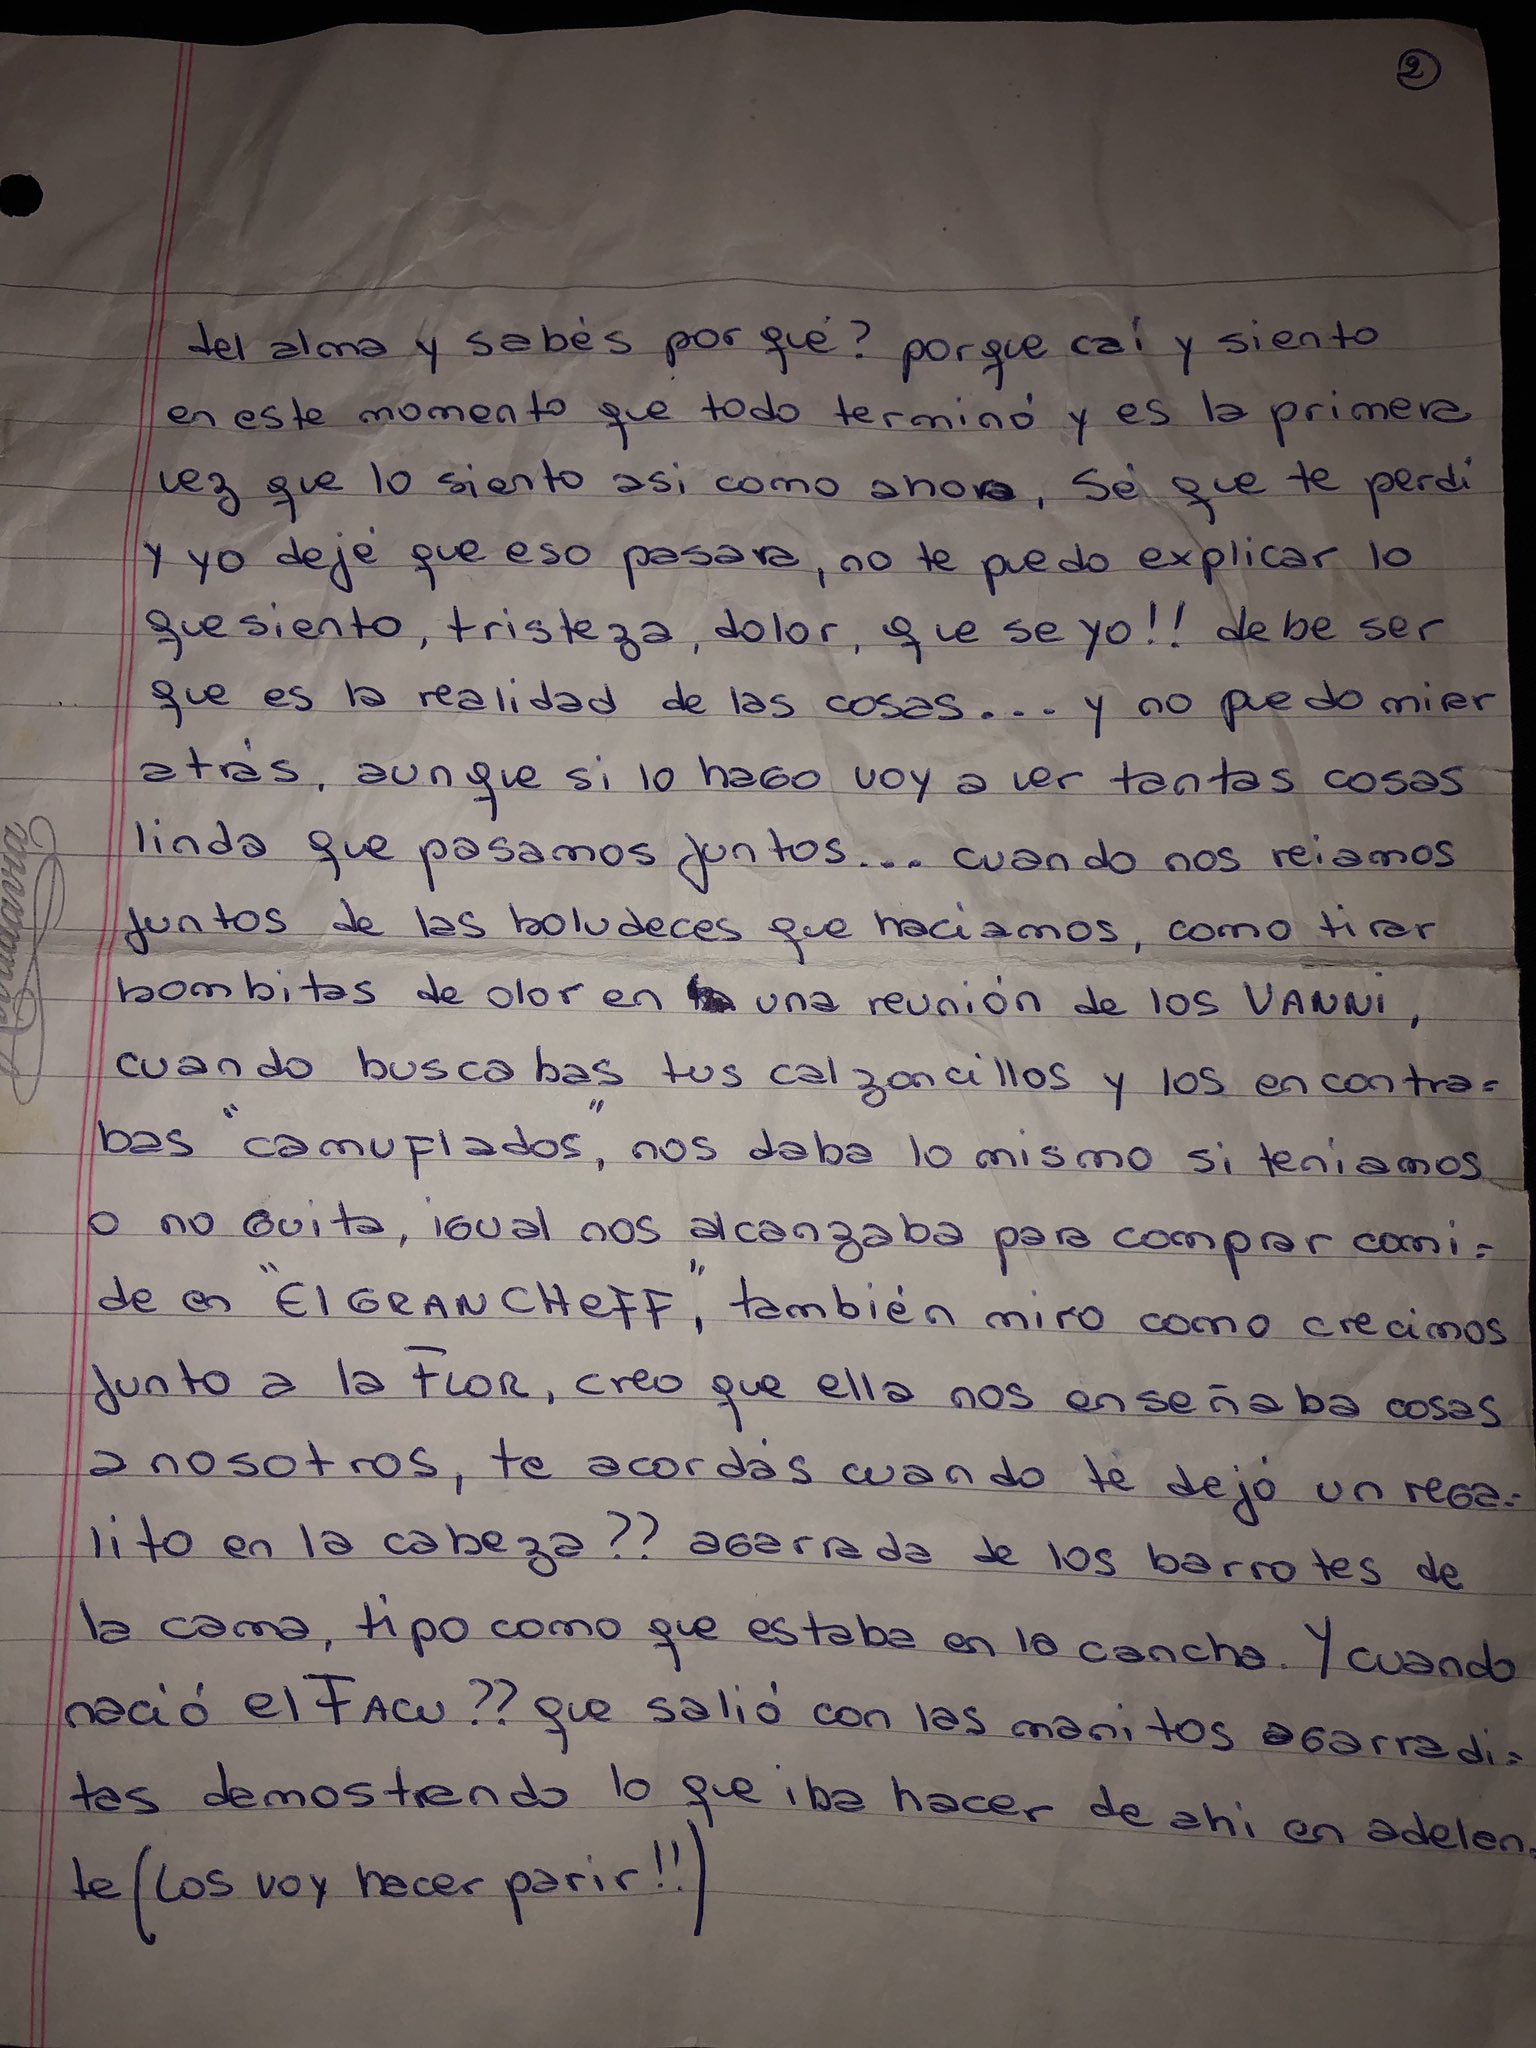 2
del alma y sabés por qué? porque caí y siento
en este momento que todo terminó y es la primera
vez que lo siento asi como ahora, sé que te perdí
y yo dejé que eso pasara, no te puedo explicar lo
que siento, tristeza, dolor, que se yo!! debe ser
que es la realidad de las cosas.... y no puedo mirar
atrás, aunque si lo hago voy a ver tantas cosas
linda que pasamos juntos... cuando nos reiamos
juntos de las boludeces que haciamos, como tirar
bombitas de olor en una reunión de los VANNI,
cuando buscabas tus calzoncillos y los encontra=
bas "camuflados", nos daba lo mismo si teníamos
o no guita, igual nos alcanzaba para comprar comi=
da en "El GRAN CHEFF", también miro como crecimos
junto a la FLOR, creo que ella nos enseñaba cosas
a nosotros, te acordás cuando te dejó un rega=
lito en la cabeza?? agarrada de los barrotes de
la cama, tipo como que estaba en la cancha. Y cuando
nació el FACU?? que salió con las manitos agarradi=
tas demostrando lo que iba hacer de ahi en adelan=
te (Los voy hacer parir!!)